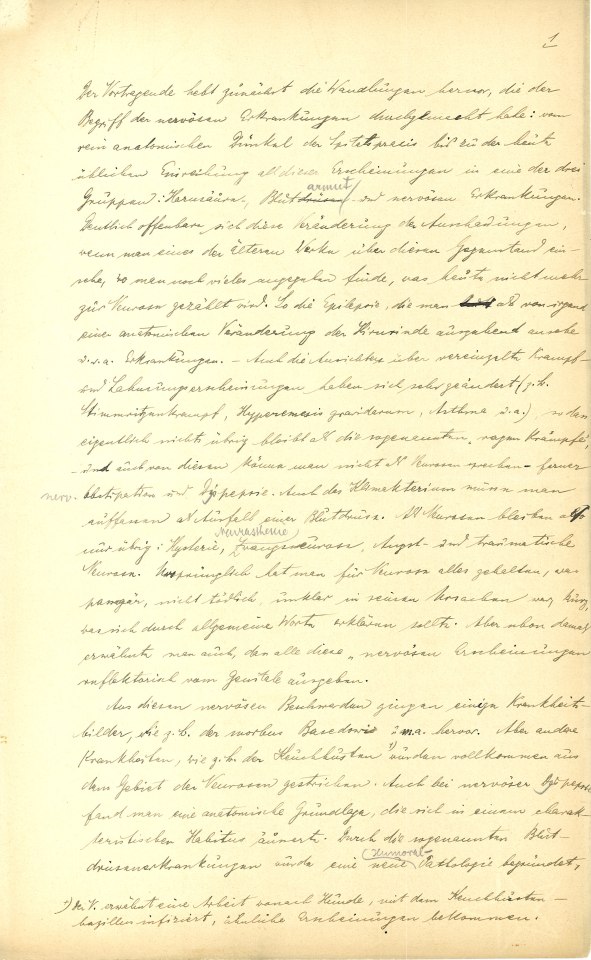 1
Der Vortragende hebt zunächst die Wandlungen hervor, die der
Begriff der nervösen Erkrankungen durchgemacht habe: vom
rein anatomischen Dünkel der Spitalspraxis bis zu der heute
üblichen Einreihung all dieser Erscheinungen in eine der drei
armut
Gruppen: Harnsäure-, Blutdrüsen- und nervösen Erkrankungen.
Deutlich offenbare sich diese Veränderung der Anschauungen,
wenn man eines der älteren Werke über diesen Gegenstand ein-
sehe, wo man noch vieles angegeben finde, was heute nicht mehr
zur Neurose gezählt wird. So die Epilepsie, die man als von irgend
einer anatomischen Veränderung der Hirnrinde ausgehend ansehe
u.v.a. Erkrankungen. – Auch die Ansichten über vereinzelte Krampf-
und Lähmungserscheinungen haben sich sehr geändert (z.b.
Stimmritzenkrampf, Hyperemesis gravidarum, Asthma u.a.), so dass
eigentlich nichts übrig bleibt als die sogenannten „vagen Krämpfe",
– und auch von diesen könne man nicht als Neurosen sprechen – ferner
nerv. Obstipation und Dyspepsie. Auch das Klimakterium müsse man
auffassen als Ausfall einer Blutdrüse. Als Neurosen bleiben also
Neurasthenie
nur übrig: Hysterie, Zwangsneurose, Angst- und traumatische
Neurose. Ursprünglich hat man für Neurose alles gehalten, was
vag, nicht tödlich, unklar in seinen Ursachen war, kurz,
was sich durch allgemeine Worte erklären sollte. Aber eben damals
erwähnte man auch, dass alle diese „nervösen Erscheinungen
reflektorisch vom Genitale ausgehen.
Aus diesen nervösen Beschwerden gingen einige Krankheits-
bilder, wie z.b. der morbus Basedowii u.a. hervor. Aber andere
Krankheiten, wie z.b. der Keuchhusten ¹) wurden vollkommen aus
dem Gebiet der Neurosen gestrichen. Auch bei nervöser Dyspepsie
fand man eine anatomische Grundlage, die sich in einem charak-
teristischen Habitus äussert. Durch die sogenannten Blut-
(Humoral-
drüsenerkrankungen wurde eine neue Pathologie begründet,
¹) Der V. erwähnt eine Arbeit wonach Hunde, mit dem Keuchhusten-
bazillen infiziert, ähnliche Erscheinungen bekommen.